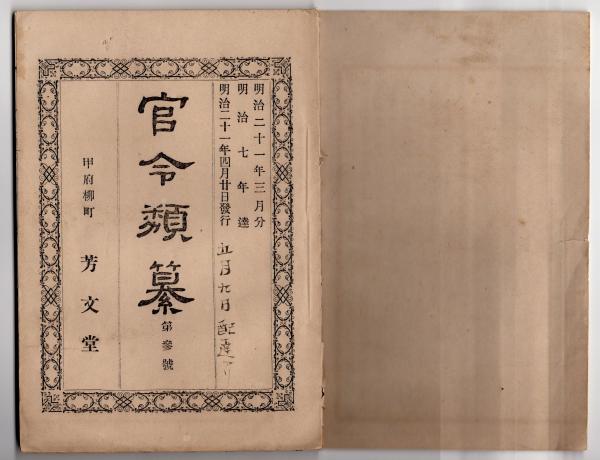 明治二十一年三月分
明治七年達
明治二十一年四月廿日發行
五月九日配達
官令類纂
第參號
甲府柳町
芳文堂